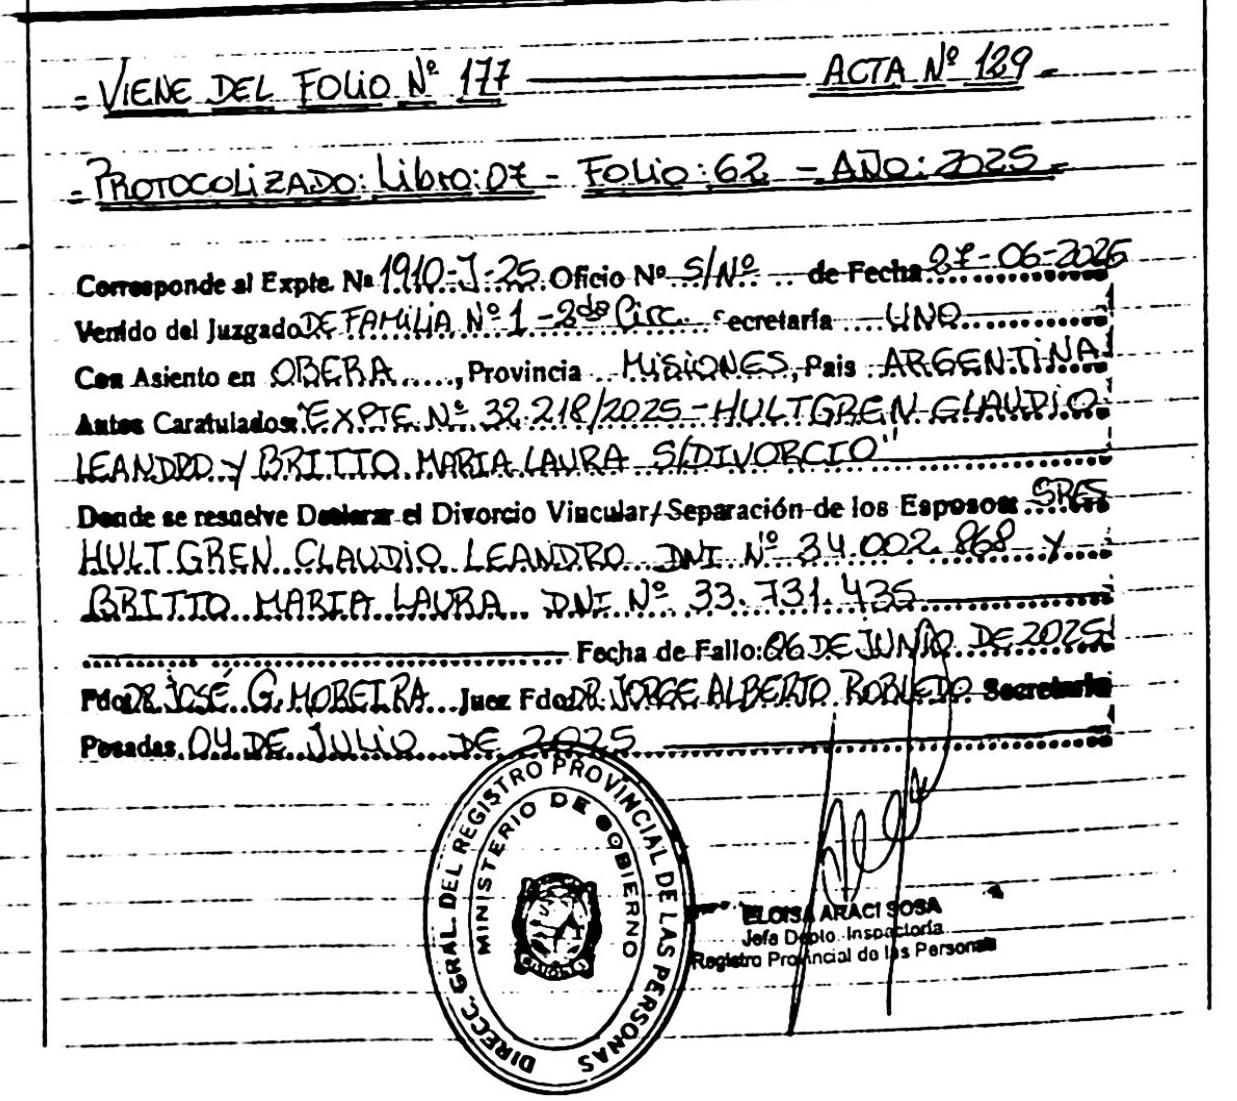 = VIENE DEL FOLIO Nº 177 ——— ACTA Nº 129 =
= PROTOCOLIZADO: Libro: 07 - FOLIO: 62 - AÑO: 2025 =
Corresponde al Expte. Nº 1910-J-25 Oficio Nº S/Nº de Fecha 27-06-2025
Venido del Juzgado DE FAMILIA Nº 1 - 2da Circ. Secretaría UNO
Con Asiento en OBERA, Provincia MISIONES, Pais ARGENTINA
Autos Caratulados: "EXPTE. Nº 32.218/2025 - HULTGREN CLAUDIO
LEANDRO Y BRITTO MARIA LAURA S/DIVORCIO"
Donde se resuelve Declarar el Divorcio Vincular/Separación de los Esposos: SRES
HULTGREN CLAUDIO LEANDRO DNI Nº 34.002.868 Y
BRITTO MARIA LAURA DNI Nº 33.731.435
Fecha de Fallo: 06 DE JUNIO DE 2025
Fdo. DR. JOSÉ G. MOREIRA Juez Fdo. DR. JORGE ALBERTO ROBLEDO Secretaria
Posadas, 04 DE JULIO DE 2025
DIRECC. GRAL. DEL REGISTRO PROVINCIAL DE LAS PERSONAS
MINISTERIO DE GOBIERNO
ELOISA ARACI SOSA
Jefa Dpto. Inspectoría
Registro Provincial de las Personas